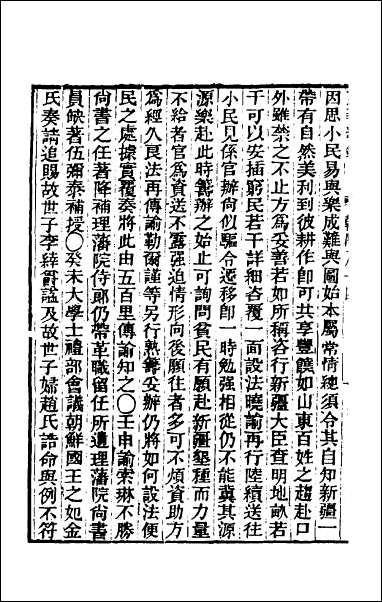 因思小民易與樂成難與圖始本屬常情總須令其自知新疆一
帶有自然美利到彼耕作卽可共享豐饒如山東百姓之趨赴口
外雖禁之不止方爲妥善若如所稱咨行新疆大臣查明地畝若
干可以安插窮民若干詳細咨覆一面設法曉諭再行陸續送往
小民見係官辦尙似驅令遷移卽一時勉强相從仍不能冀其源
源樂赴此時籌辦之始止可詢問貧民有願赴新疆墾種而力量
不給者官爲資送不露强迫情形向後願往者多可不煩資助方
爲經久良法再傳諭勒爾謹等另行熟籌妥辦仍將如何設法便
民之處據實覆奏將此由五百里傳諭知之〇壬申諭索琳不勝
尙書之任著降補理藩院侍郞仍帶革職留任所遺理藩院尙書
員缺著伍彌泰補授〇癸未大學士禮部會議朝鮮國王之妃金
氏奏請追賜故世子李緈爵諡及故世子婦趙氏誥命與例不符